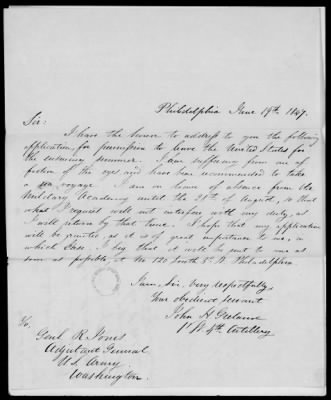 Philadelphia June 19th. 1847.
Sir:
I have the honor to address to you the following
application, for permission to leave the United States for
the ensuing summer. I am suffering from an af
fection of the eyes and have been recommended to take
a sea voyage. I am on leave of absence from the
Military Academy until the 28th of August, so that
what I request will not interfere with my duty, as
I will return by that time. I hope that my application
will be granted, as it is of great importance to me, in
which case I beg that it will be sent to me as
soon as possible, at No 120 South 5th St. Philadelphia
I am, Sir, very respectfully
Your obedient servant.
John H. Greland
1st Lt. 4th Artillery
To,
Genl. R. Jones
Adjutant General
U.S. Army.
Washington.